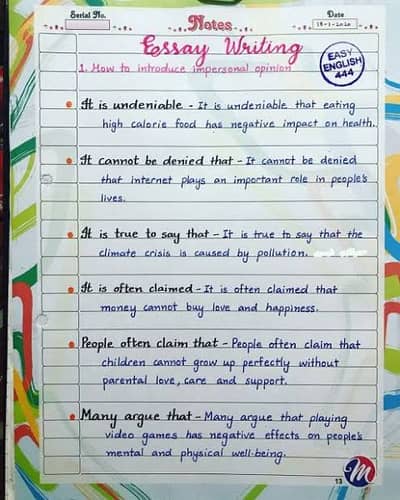 Serial No.
Notes
Date
15-1-2020
Essay Writing
1. How to introduce impersonal opinion
EASY
ENGLISH
444
It is undeniable - It is undeniable that eating
high calorie food has negative impact on health.
It cannot be denied that - It cannot be denied
that internet plays an important role in people's
lives.
It is true to say that - It is true to say that the
climate crisis is caused by pollution.
It is often claimed - It is often claimed that
money cannot buy love and happiness.
People often claim that - People often claim that
children cannot grow up perfectly without
parental love, care and support.
Many argue that - Many argue that playing
video games has negative effects on people's
mental and physical well-being.
13
M